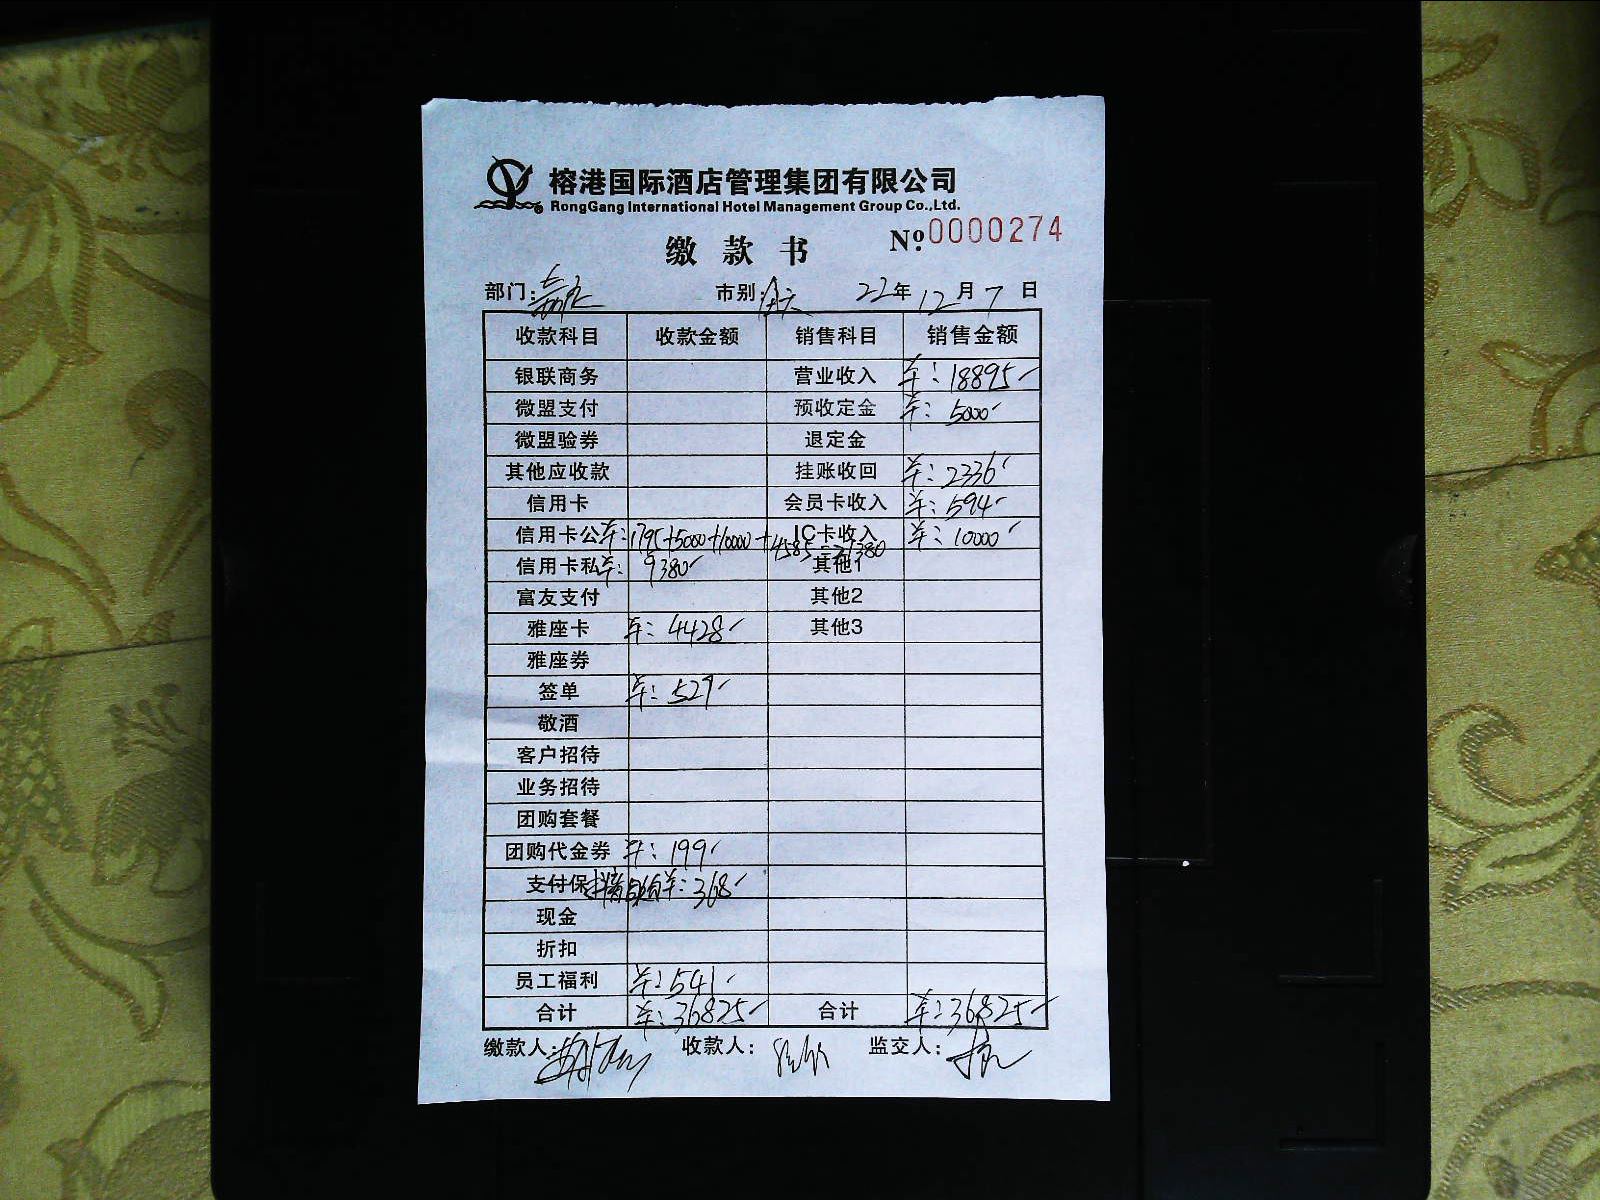 榕港国际酒店管理集团有限公司
RongGang International Hotel Management Group Co.,Ltd.
缴 款 书 Nº 0000274
部门: 市别: 全天 22年 12月 7日
收款科目 收款金额 销售科目 销售金额
银联商务 营业收入 羊: 18895
微盟支付 预收定金 羊: 5000
微盟验券 退定金
其他应收款 挂账收回 羊: 2336
信用卡 会员卡收入 羊: 594
信用卡公 羊: 1795+5000+10000+4585=21380 IC卡收入 羊: 10000
信用卡私 羊: 9380 其他1
富友支付 其他2
雅座卡 羊: 4428 其他3
雅座券
签单 羊: 529
敬酒
客户招待
业务招待
团购套餐
团购代金券 羊: 199
支付保 抖音 羊: 368
现金
折扣
员工福利 羊: 541
合计 羊: 36825 合计 羊: 36825
缴款人: 收款人: 监交人: